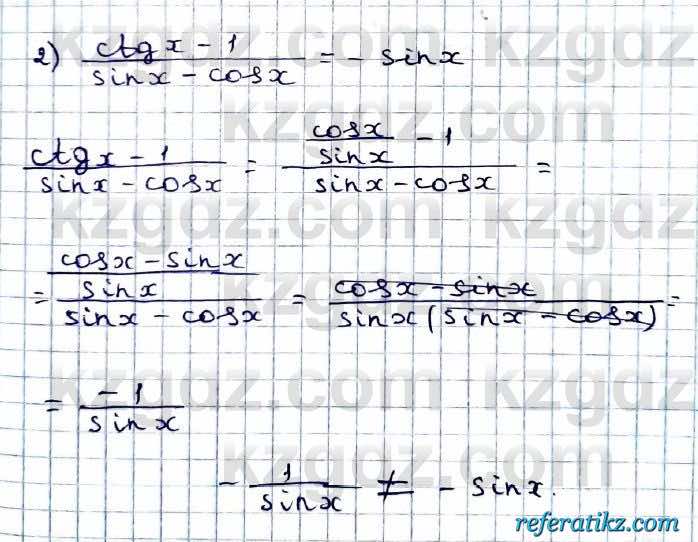 2) (ctg x - 1)/(sin x - cos x) = - sin x
(ctg x - 1)/(sin x - cos x) = (cos x/sin x - 1)/(sin x - cos x) =
= ((cos x - sin x)/sin x)/(sin x - cos x) = (cos x - sin x)/(sin x (sin x - cos x)) =
= -1/sin x
- 1/sin x ≠ - sin x.
kzgdz.com
referatikz.com